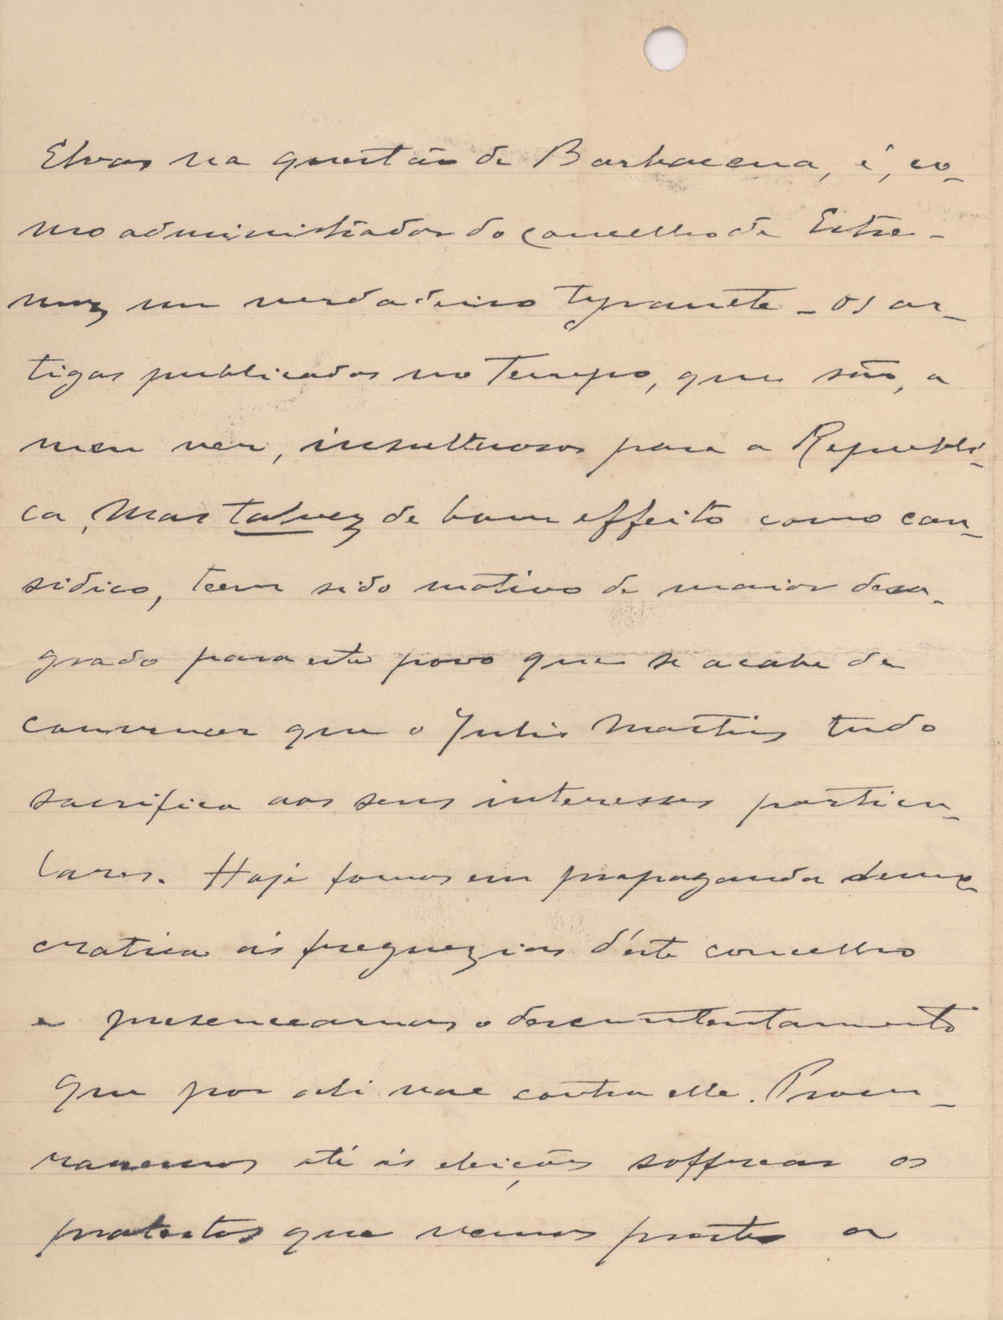 Elvas na questão de Barbacena, é, co-
mo administrador do concelho de Estre-
moz um verdadeiro tyranete - os ar-
tigos publicados no Tempo, que são, a
meu ver, insultuosos para a Republi-
ca, mas talvez de bom effeito como cau-
sidico, teem sido motivo de maior desa-
grado para este povo que se acaba de
convencer que o Julio Martins tudo
sacrifica aos seus interesses particu-
lares. Hoje fomos em propaganda demo
cratica ás freguezias d'este concelho
e presenceamos o descontentamento
que por ali vae contra elle. Procu-
raremos até ás eleições soffrear os
protestos que vemos prestes a